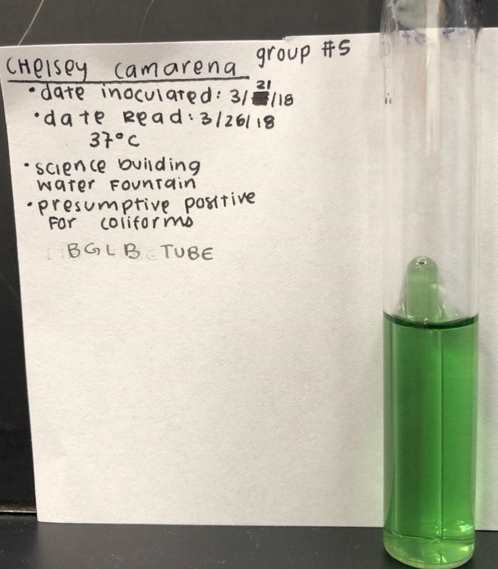 Chelsey Camarena group #5
• date inoculated: 3/21/18
• date Read: 3/26/18
37°C
• science building
water Fountain
• presumptive positive
For coliforms
BGLB TUBE